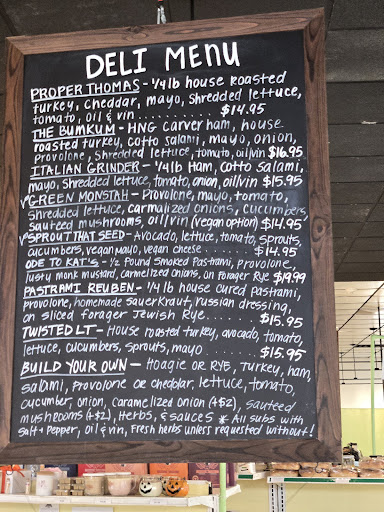 DELI MENU
PROPER THOMAS - 1/4 lb house Roasted
turkey, cheddar, mayo, shredded lettuce,
tomato, oil & vin .......... $14.95
THE BUMKUM - HNG Carver ham, house
roasted turkey, cotto salami, mayo, onion,
provolone, shredded lettuce, tomato, oil/vin $16.95
ITALIAN GRINDER - 1/4 lb Ham, cotto salami,
mayo, shredded lettuce, tomato, onion, oil/vin $15.95
√GREEN MONSTAH - Provolone, mayo, tomato,
shredded lettuce, carmalized onions, cucumbers,
sauteed mushrooms oil/vin (vegan option) $14.95
√SPROUT THAT SEED - Avocado, lettuce, tomato, sprouts,
cucumbers, vegan mayo, vegan cheese ...... $14.95
ODE TO KAT'S - 1/2 Pound Smoked Pastrami, provolone,
lusty monk mustard, carmelized onions, on Forager Rye $19.99
PASTRAMI REUBEN - 1/4 lb house cured pastrami,
provolone, homemade sauerkraut, russian dressing,
on sliced forager Jewish Rye..... $15.95
TWISTED LT - House roasted turkey, avocado, tomato,
lettuce, cucumbers, sprouts, mayo ....... $15.95
BUILD YOUR OWN - Hoagie OR RYE, turkey, ham,
salami, Provolone or cheddar, lettuce, tomato,
cucumber, onion, caramelized onion (+$2), sauteed
mushrooms (+$2), Herbs, & sauces * All subs with
salt & Pepper, oil & vin, Fresh herbs unless requested without!